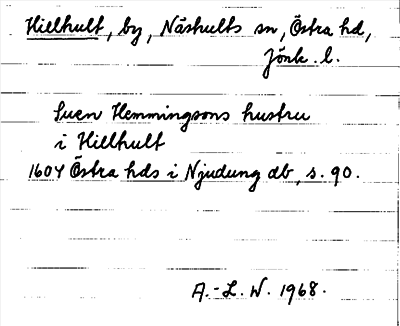 Hillhult, by, Näshults sn, Östra hd,
Jönk. l.
Suen Hemmingsons hustru
i Hillhult
1604 Östra hds i Njudung db, s. 90.
A.-L. W. 1968.